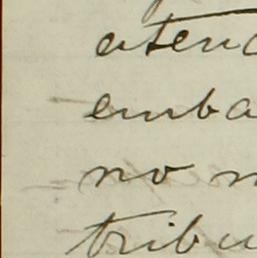 atenc
emba
no n
tribu